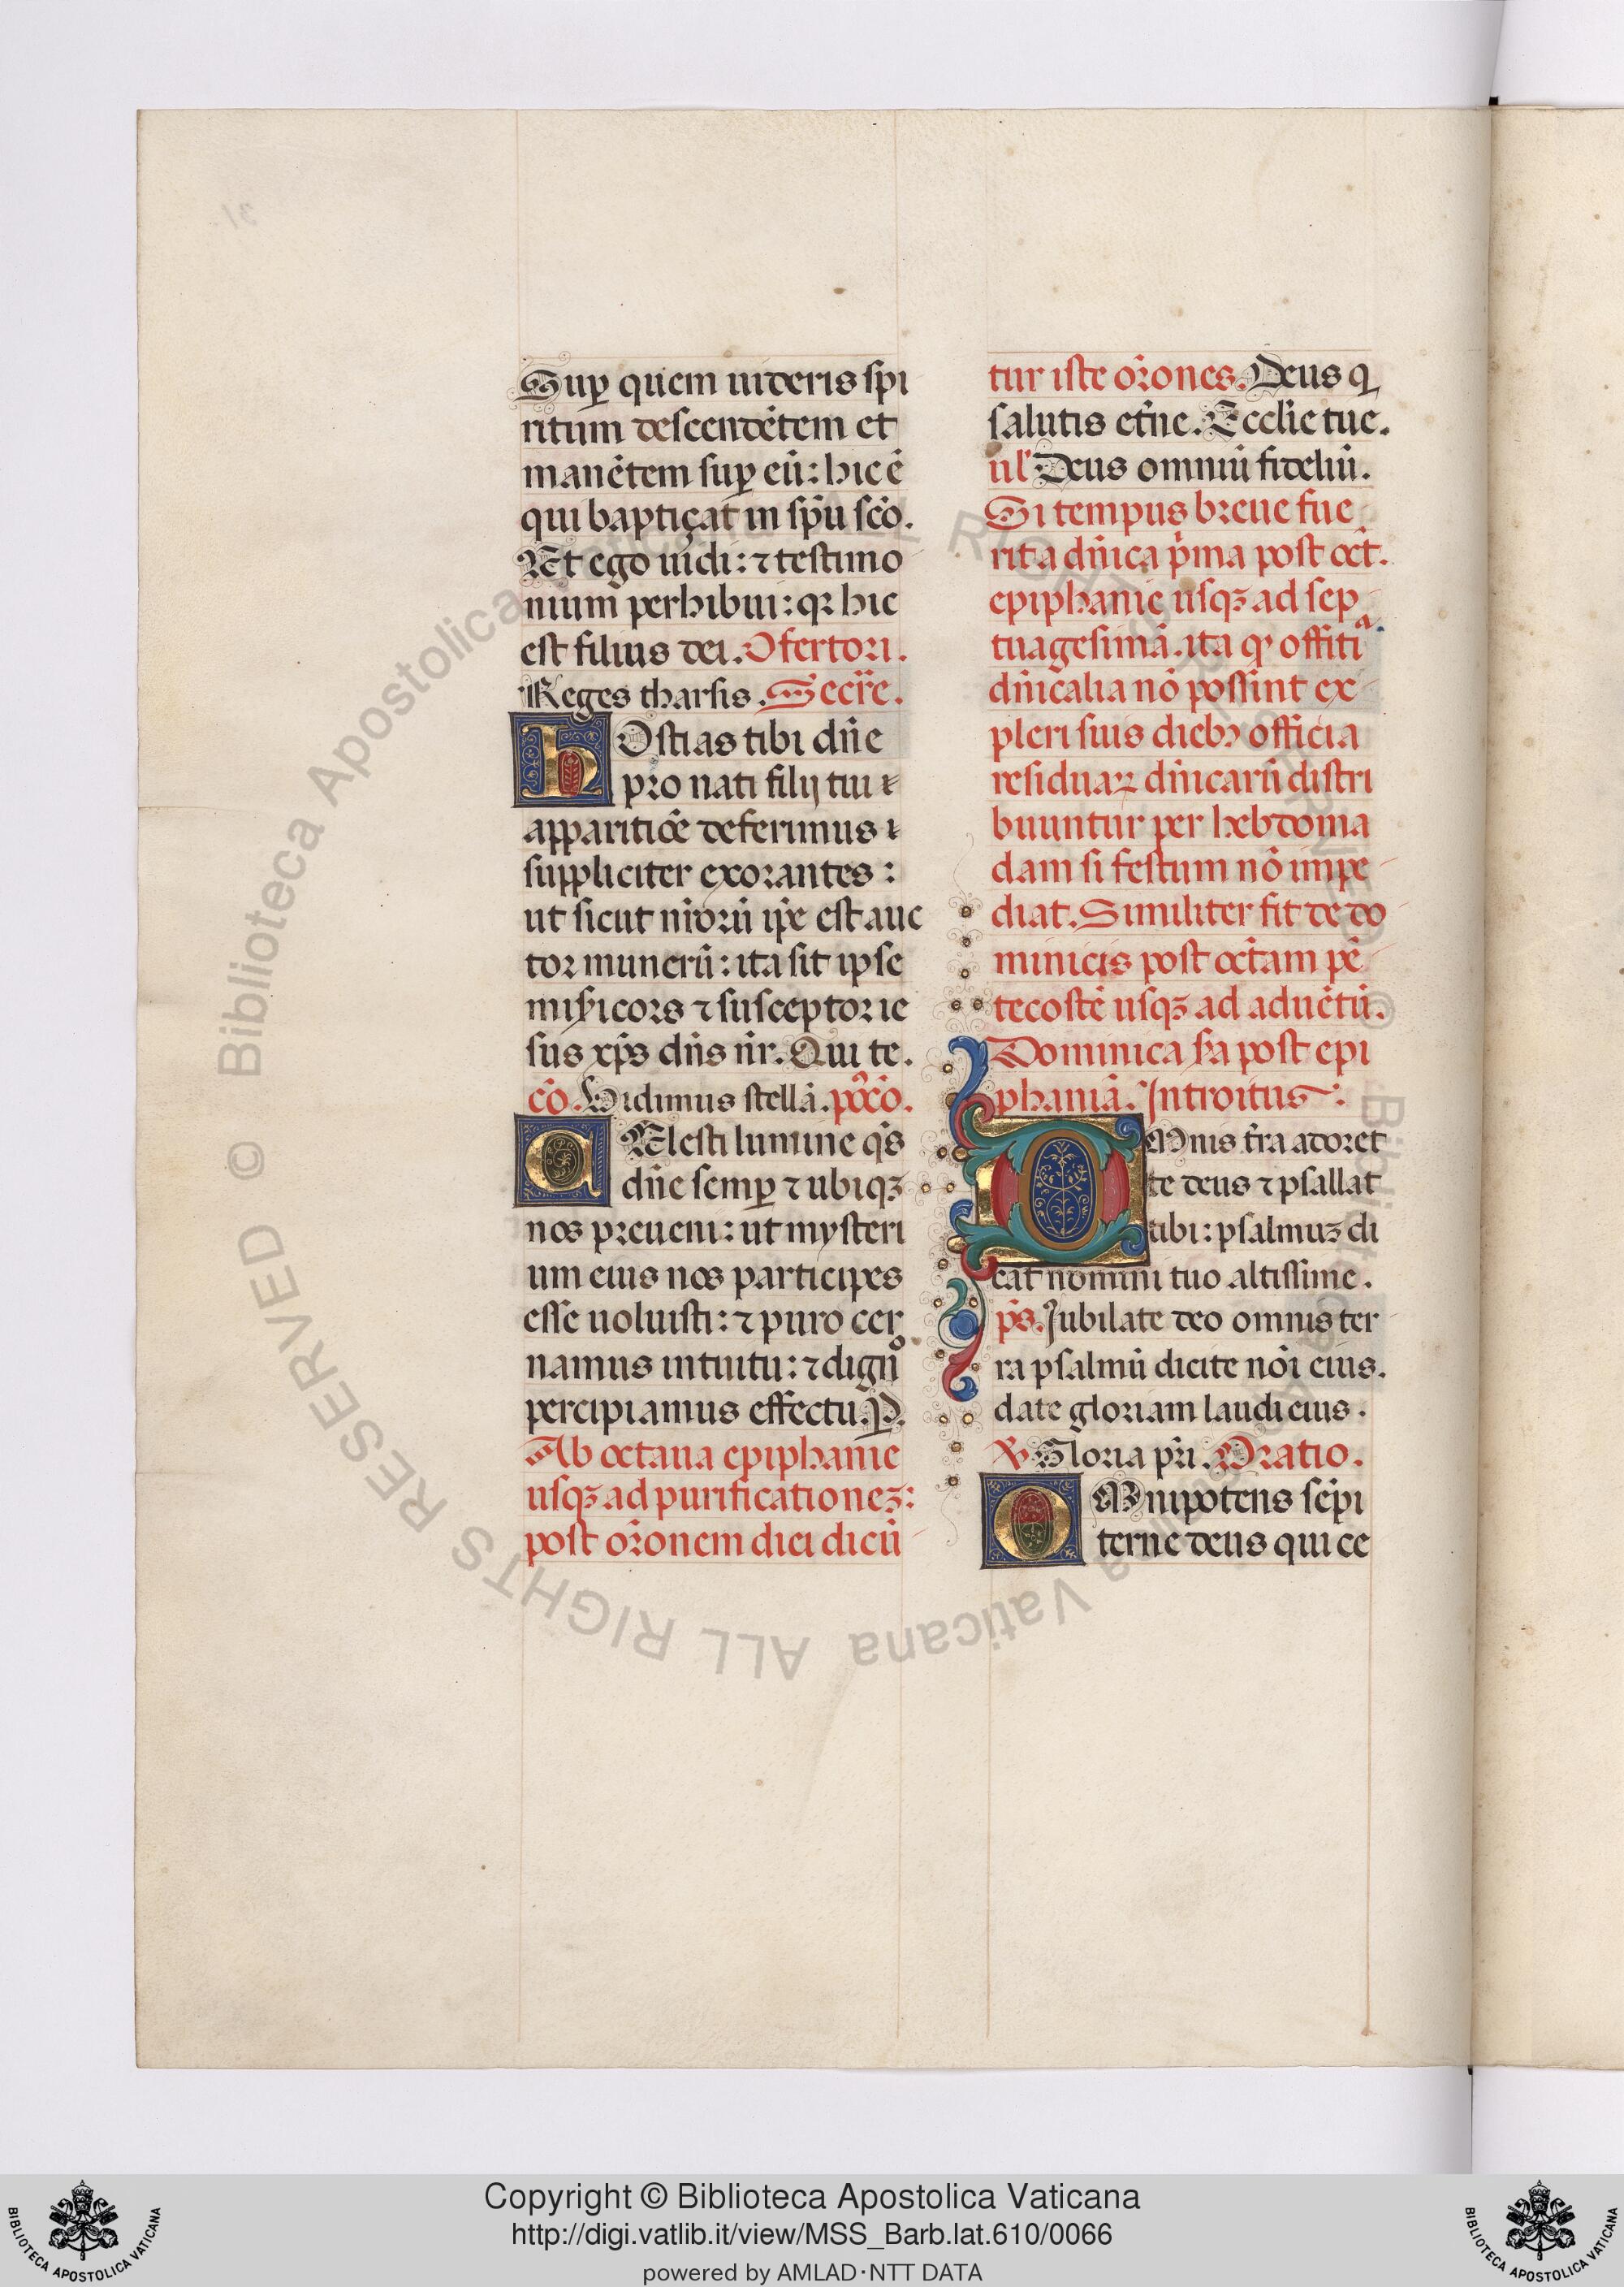 Sup quem uideris spi
ritum descendētem et
manētem sup eū: hic ē
qui baptiçat in spū scō.
Et ego uidi: ⁊ testimo
nium perhibui: qꝛ hic
est filius dei. Ofertori.
Reges tharsis. Secre.
HOstias tibi dn̄e
pro nati filij tui
apparitiōe deferimus
suppliciter exorantes:
ut sicut nr̄orū ip̄e est auc
tor munerū: ita sit ipse
misicors ⁊ susceptor ie
sus xp̄s dn̄s nr̄. Qui te.
cō. Uidimus stellā. pōcō.
CElesti lumine qs̄
dn̄e semp ⁊ ubiqꝫ
nos preueni: ut mysteri
um cuius nos participes
esse uoluisti: ⁊ puro cer
namus intuitu: ⁊ dignͦ
percipiamus effectu. P.
Ab octaua epiphanie
usqꝫ ad purificationeꝫ:
post or̄onem diei dicū
tur iste or̄ones. Deus q
salutis et̄ne. Ecclīe tue.
ul̄ Deus omniū fideliū.
Si tempus breue fue
rit a dn̄ica p̄ma post oct̄.
epiphanie usqꝫ ad sep
tuagesimā. ita qͥ offitiᵃ
dn̄icalia nō possint ex
pleri suis diebꝫ officia
residuaꝝ dn̄icarū distri
buuntur per hebdoma
dam si festum nō impe
diat. Similiter fit de do
minicis post octāam pē
tecostē usqꝫ ad aduētū.
Dominica s̄a post epi
phaniā. Introitus:
OMnis t̄ra adoret
te deus ⁊ psallat
tibi: psalmuꝫ di
cat nomini tuo altissime.
ps̄. Jubilate deo omnis ter
ra psalmū dicite nōi eius.
date gloriam laudi eius.
℣ Gloria pr̄i. Oratio.
OMnipotens sēpi
terne deus qui ce
Copyright © Biblioteca Apostolica Vaticana
http://digi.vatlib.it/view/MSS_Barb.lat.610/0066
powered by AMLAD·NTT DATA
BIBLIOTECA APOSTOLICA VATICANA
BIBLIOTECA APOSTOLICA VATICANA
© Biblioteca Apostolica Vaticana ALL RIGHTS RESERVED